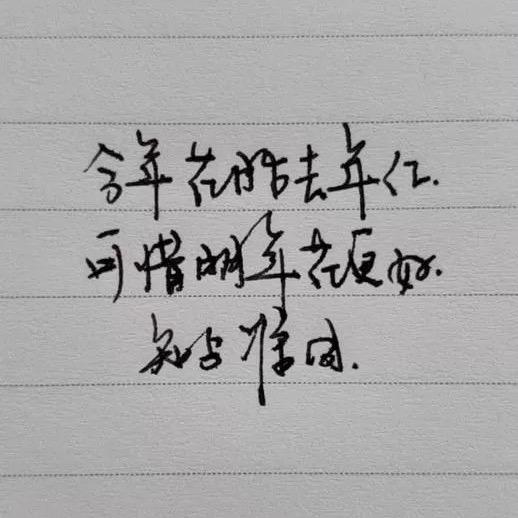 今年花胜去年红.
可惜明年花更好.
知与谁同.